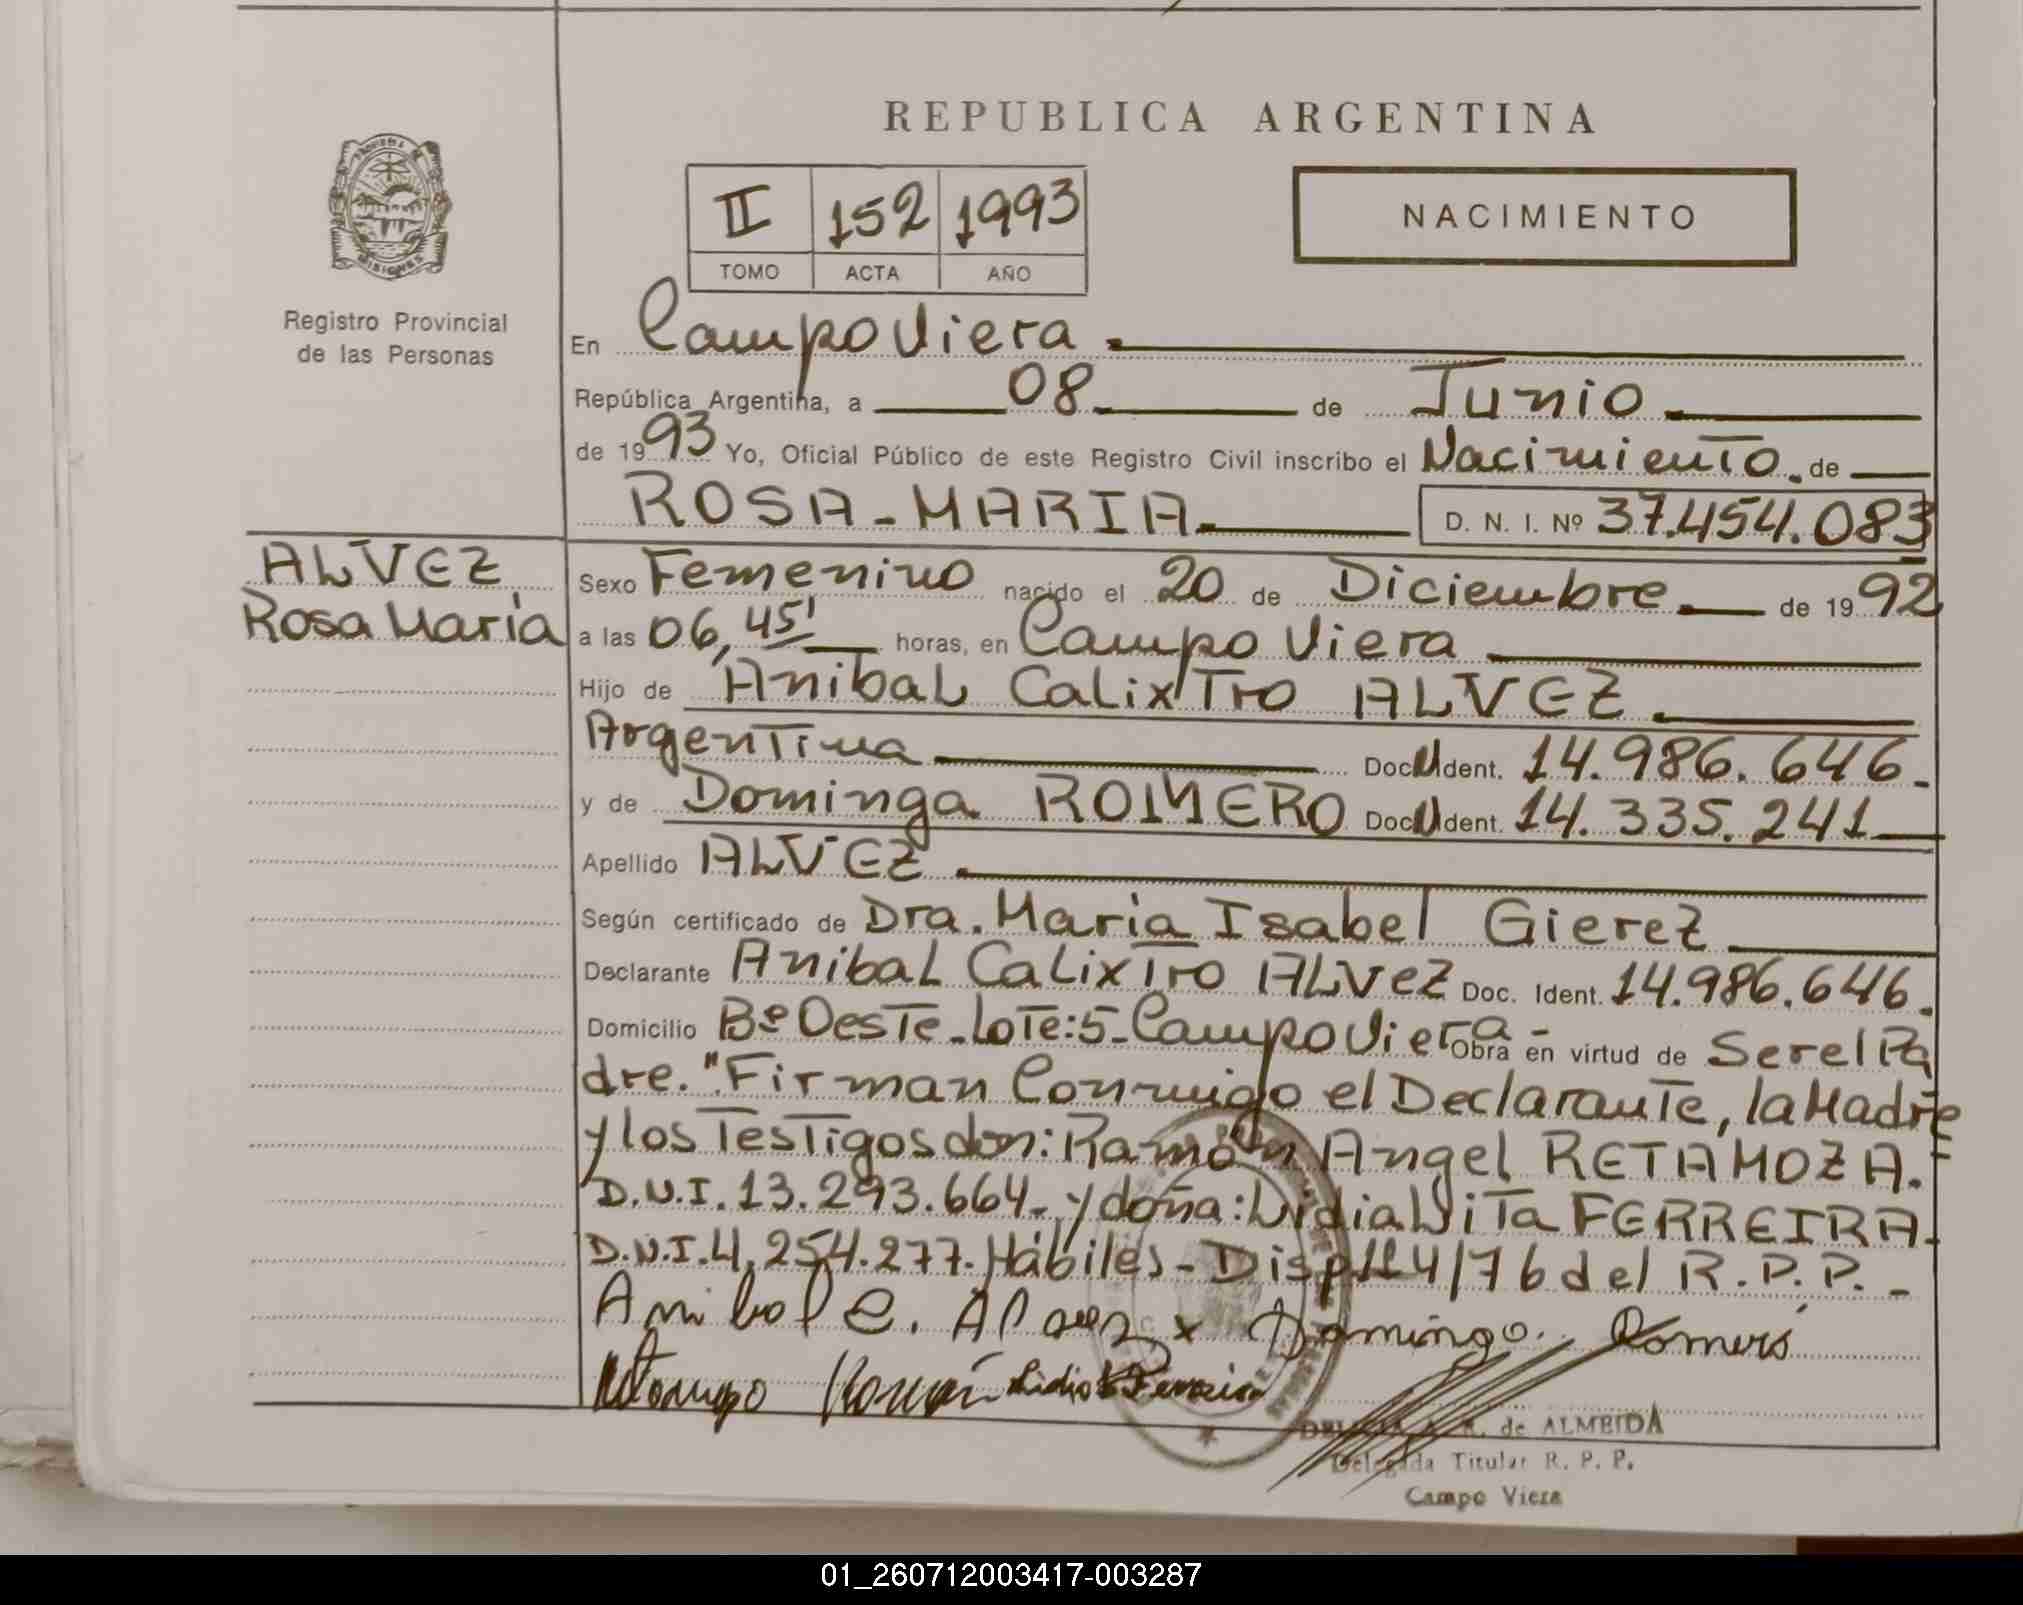 REPUBLICA ARGENTINA
II 152 1993
TOMO ACTA AÑO
NACIMIENTO
MISIONES
Registro Provincial
de las Personas
En Campo Viera
República Argentina, a 08 de Junio
de 1993 Yo, Oficial Público de este Registro Civil inscribo el Nacimiento de
ROSA-MARIA D. N. I. Nº 37.454.083
ALVEZ
Rosa María
Sexo Femenino nacido el 20 de Diciembre de 1992
a las 06,45' horas, en Campo Viera
Hijo de Anibal Calixtro ALVEZ
Argentina Doc. Ident. 14.986.646.
y de Dominga ROMERO Doc. Ident. 14.335.241
Apellido ALVEZ
Según certificado de Dra. Maria Isabel Gierez
Declarante Anibal Calixtro ALVEZ Doc. Ident. 14.986.646.
Domicilio Bº Oeste-Lote:5-Campo Viera- Obra en virtud de Ser el Pa
dre. "Firman Conmigo el Declarante, la Madre
y los Testigos don: Ramón Angel RETAMOZA.
D.N.I. 13.293.664- y doña: Lidia Vita FERREIRA-
D.N.I. 4.254.277. Hábiles- Disp 114/76 del R.P.P.-
Anibal C. Alvez x Dominga Romero
Lidia Ferreira
de ALMEIDA
Delegada Titular R. P. P.
Campo Viera
01_260712003417-003287